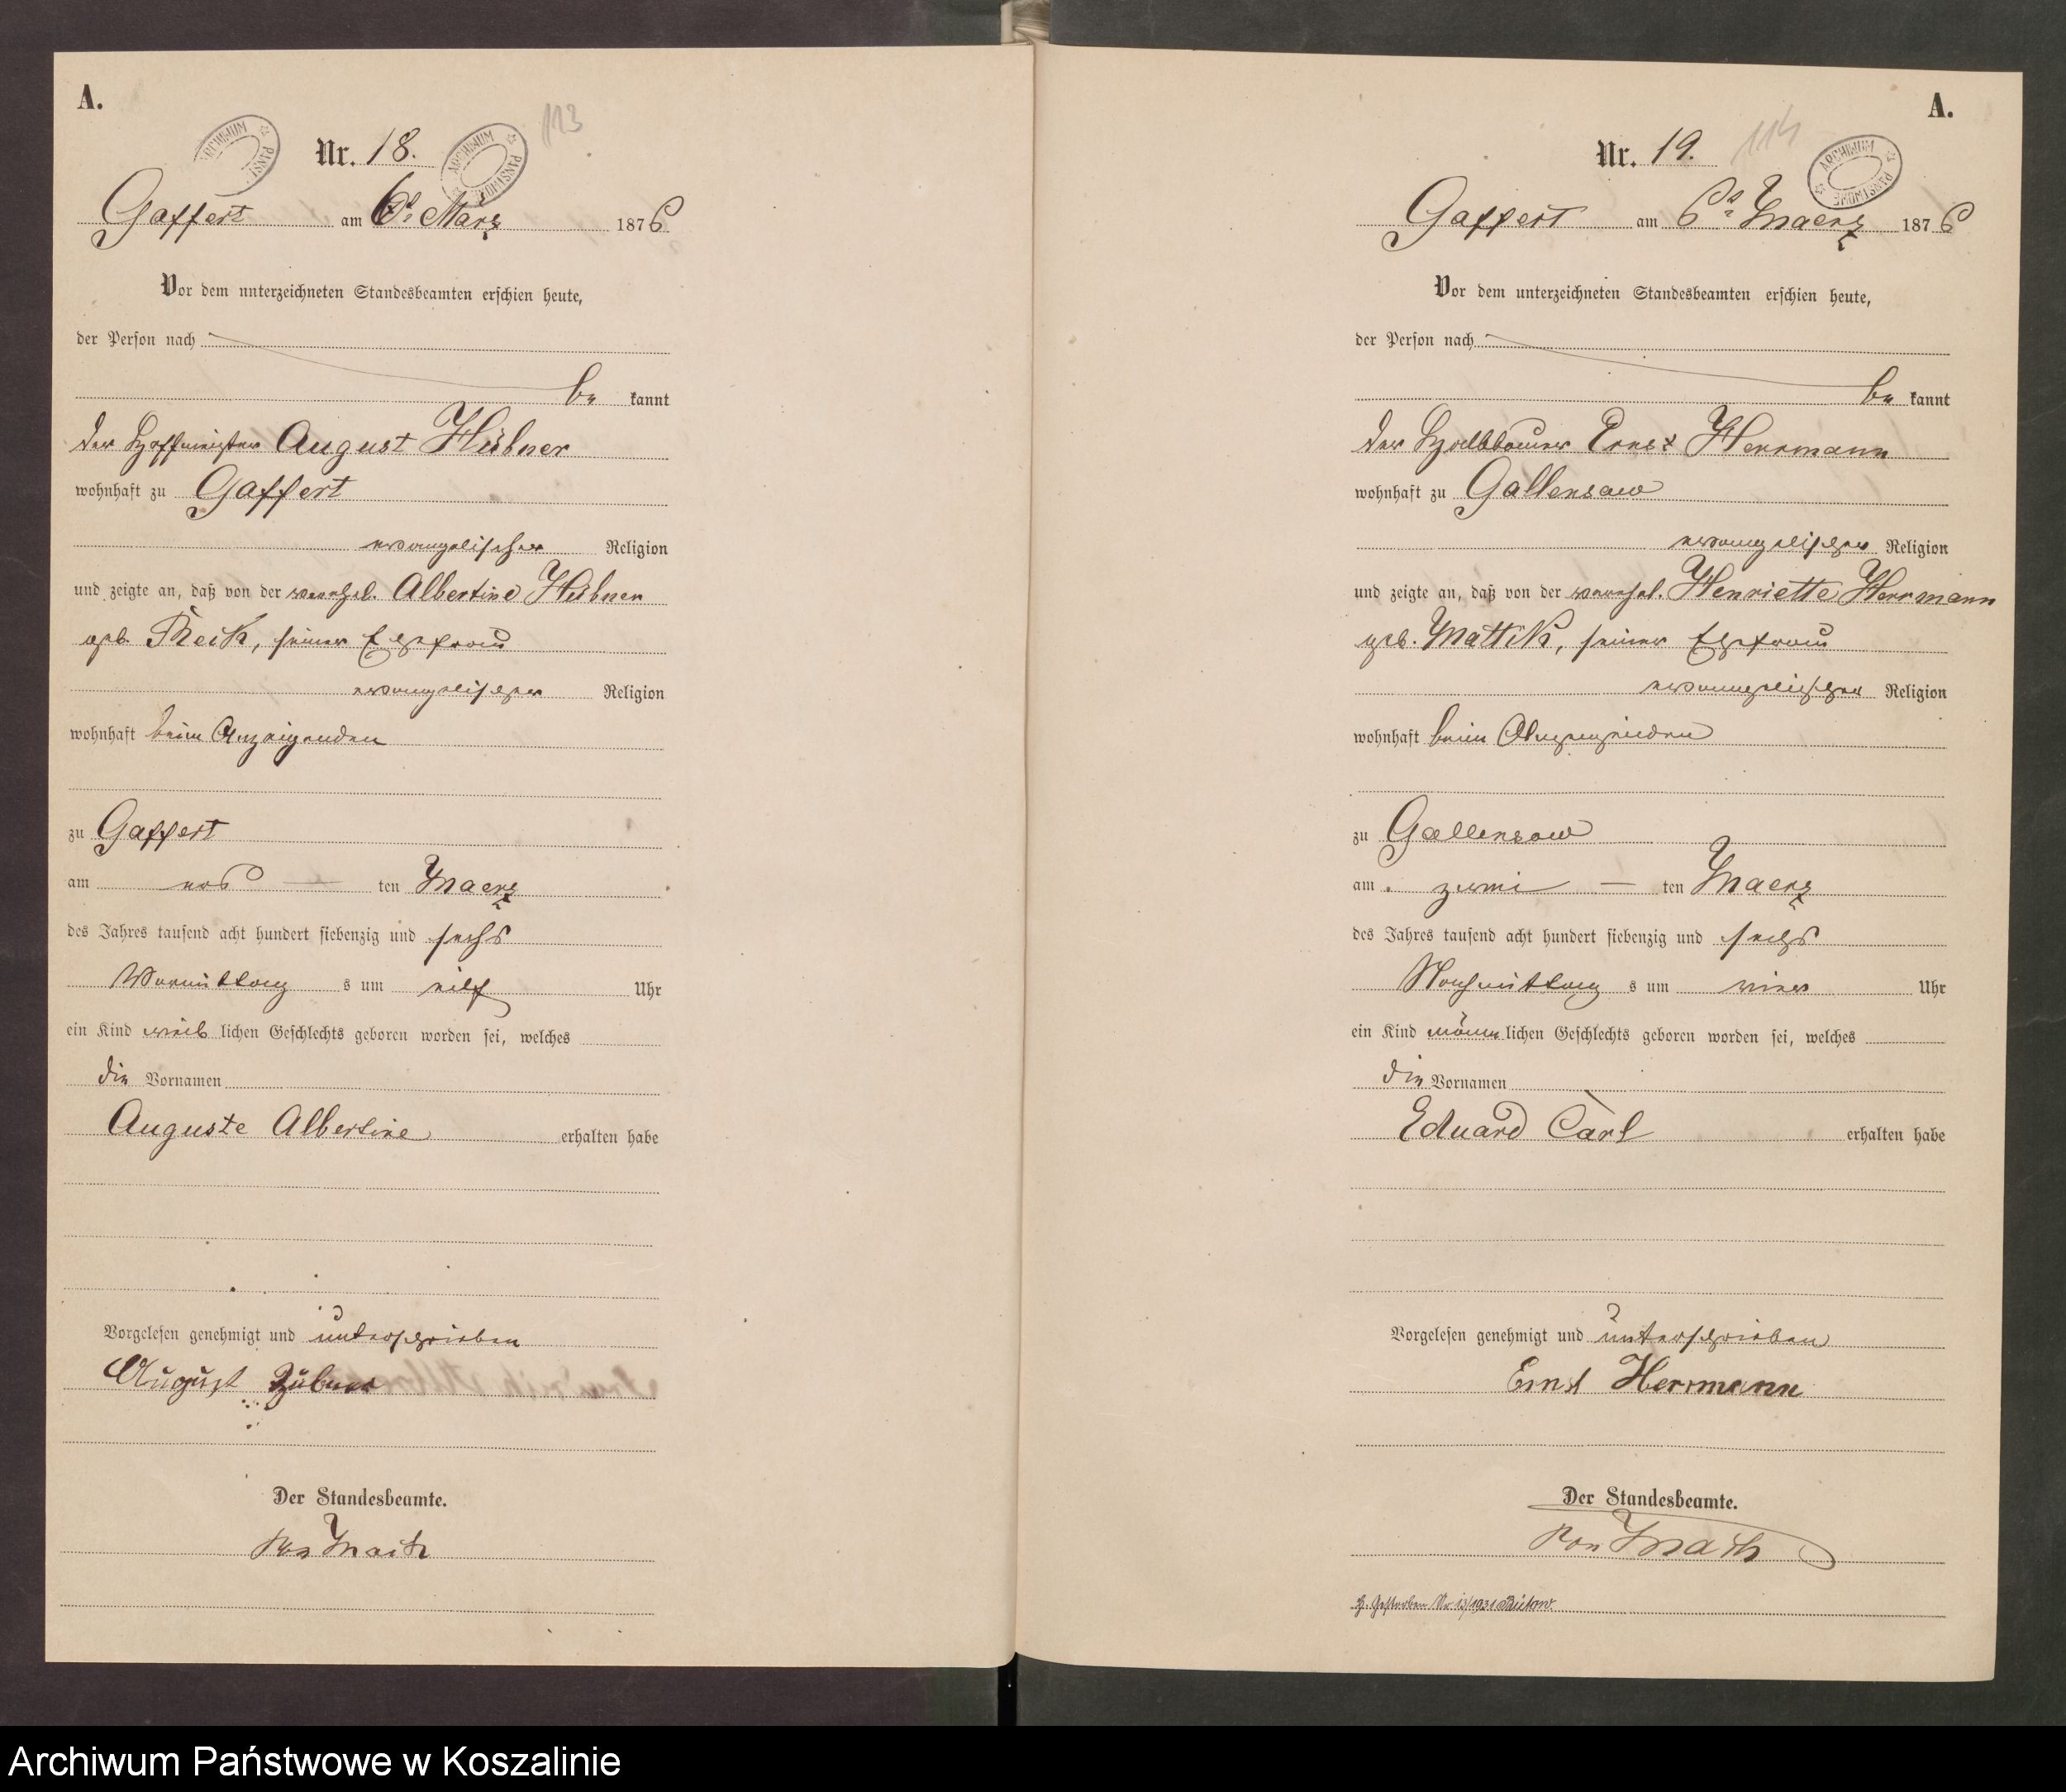 A.
113
Nr. 18.
ARCHIWUM PAŃST
ARCHIWUM PAŃSTWOWE
Gaffert am 6t März 1876
Vor dem unterzeichneten Standesbeamten erschien heute,
der Person nach
be kannt
der Hoffmeister August Hübner
wohnhaft zu Gaffert
evangelischer Religion
und zeigte an, daß von der verehel. Albertine Hübner
geb. Reik, seiner Ehefrau
evangelischer Religion
wohnhaft beim Anzeigenden
zu Gaffert
am ers ten Maerz
des Jahres tausend acht hundert siebenzig und sechs
Vormittag s um eilf Uhr
ein Kind weib lichen Geschlechts geboren worden sei, welches
die Vornamen
Auguste Albertine erhalten habe
Vorgelesen genehmigt und unterschrieben
August Hübner
Der Standesbeamte.
A.
114
Nr. 19.
ARCHIWUM PAŃSTWOWE
Gaffert am 6t Maerz 1876
Vor dem unterzeichneten Standesbeamten erschien heute,
der Person nach
be kannt
der Halbbauer Ernst Herrmann
wohnhaft zu Gallensow
evangelischer Religion
und zeigte an, daß von der verehel. Henriette Herrmann
geb. Mattik, seiner Ehefrau
evangelischer Religion
wohnhaft beim Anzeigenden
zu Gallensow
am zwei ten Maerz
des Jahres tausend acht hundert siebenzig und sechs
Nachmittag s um Uhr
ein Kind männ lichen Geschlechts geboren worden sei, welches
die Vornamen
Eduard Carl erhalten habe
Vorgelesen genehmigt und unterschrieben
Ernst Herrmann
Der Standesbeamte.
Gestorben Nr 13/1931 Bütow.
Archiwum Państwowe w Koszalinie